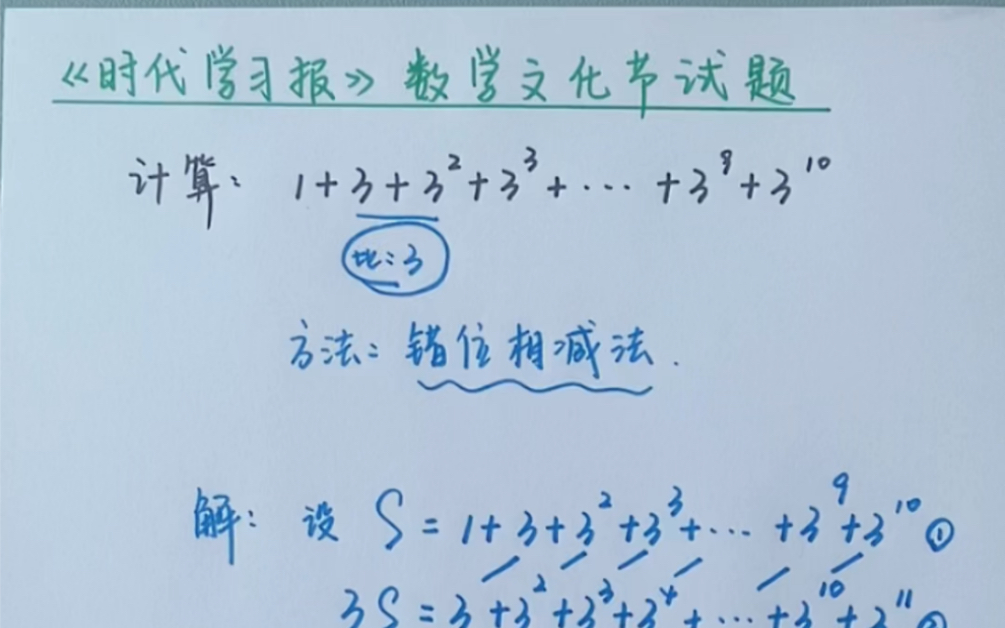 《时代学习报》数学文化节试题
计算: 1+3+3²+3³+···+3⁹+3¹⁰
比:3
方法:错位相减法.
解: 设 S=1+3+3²+3³+···+3⁹+3¹⁰ ①
3S=3+3²+3³+3⁴+···+3¹⁰+3¹¹ ②